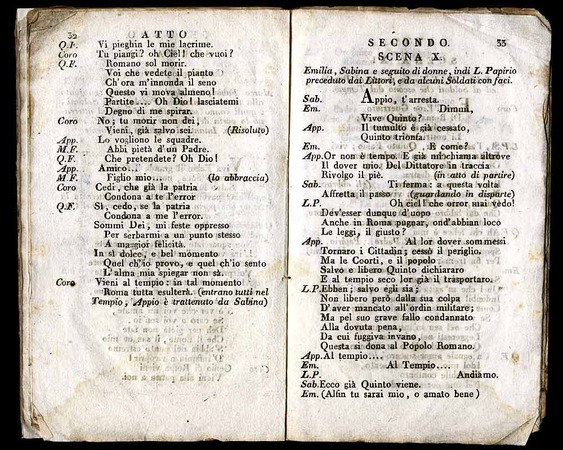 32 ATTO
Q.F. Vi pieghin le mie lacrime.
Coro Tu piangi? oh Ciel! che vuoi?
Q.F. Romano sol morir.
Voi che vedete il pianto
Ch'ora m'innonda il seno
Questo vi mova almeno!
Partite.... Oh Dio! lasciatemi
Degno di me spirar.
Coro No; tu morir non dei,
Vieni, già salvo sei. (Risoluto)
App. Lo vogliono le squadre.
M.F. Abbi pietà d'un Padre.
Q.F. Che pretendete? Oh Dio!
App. Amico...
M.F. Figlio mio.... (lo abbraccia)
Coro Cedi, che già la patria
Condona a te l'error
Q.F. Sì, cedo, se la patria
Condona a me l'error.
Sommi Dei, mi feste oppresso
Per serbarmi a un punto stesso
A maggior felicità.
In sì dolce, e bel momento
Quel ch'io provo, e quel ch'io sento
L'alma mia spiegar non sà.
Coro Vieni al tempio: in tal momento
Roma tutta esulterà. (entrano tutti nel
Tempio, Appio è trattenuto da Sabina)
SECONDO. 33
SCENA X.
Emilia, Sabina e seguito di donne, indi L. Papirio
preceduto dai Littori, e da alcuni Soldati con faci.
Sab. Appio, t'arresta.
Em. Dimmi,
Vive Quinto?
App. Il tumulto è già cessato,
Quinto trionfa.
Em. E come?
App. Or non è tempo. E già mi chiama altrove
Il dover mio. Del Dittatore in traccia
Rivolgo il piè. (in atto di partire)
Sab. Ti ferma: a questa volta
Affretta il passo (guardando in disparte)
L.P. Oh ciel! che orror mai vedo!
Dev'esser dunque d'uopo
Anche in Roma pugnar, ond'abbian loco
Le leggi, il giusto?
App. Al lor dover sommessi
Tornaro i Cittadin; cessò il periglio.
Ma le Coorti, e il popolo
Salvo e libero Quinto dichiararo
E al tempio seco lor già il trasportaro.
L.P. Ebben; salvo egli sia;
Non libero però dalla sua colpa
D'aver mancato all'ordin militare;
Ma pel suo grave fallo condannato
Alla dovuta pena,
Da cui fuggiva invano,
Questa si dona al Popolo Romano.
App. Al tempio....
Em. Al Tempio....
L.P. Andiamo.
Sab. Ecco già Quinto viene.
Em. (Alfin tu sarai mio, o amato bene)